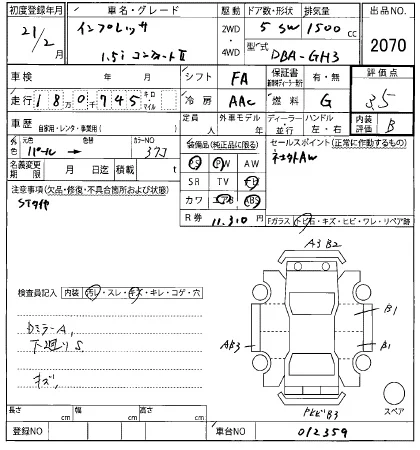 初度登録年月 車名・グレード 駆動 ドア数・形状 排気量 出品NO.
21/2月 インプレッサ 2WD・4WD 5 SW 1500 cc 2070
1.5i 型式 DBA-GH3
車検 年 月 シフト FA 保証書 有・無 評価点
走行 18万0千745 キロ マイル 冷房 AAC 燃料 G 3.5
車歴 自家用・レンタ・事業用( ) 定員 人 外車モデル 年 ディーラー・並行 ハンドル 左・右 内装評価 B
外色 元色 パール 色替 カラーNO 37J 装備品(純正品に限る) セールスポイント(正常に作動するもの)
名義変更期限 月 日迄 積載 t PS PW AW
注意事項(欠品・修復・不具合箇所および状態) SR TV ナビ
カワ エアB ABS
R券 11,310円 Fガラス トビ石・キズ・ヒビ・ワレ・リペア跡
A3 B2
検査員記入 内装 汚レ・スレ・キズ・キレ・コゲ・穴
B1
DミラーA, AB3 B1
下廻りS
キズ,
B3 スペア
長さ cm 幅 cm 高さ cm
登録NO 車台NO 012359